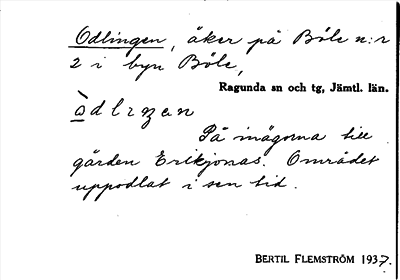 Odlingen, åker på Böle n:r
2 i byn Böle,
Ragunda sn och tg, Jämtl. län.
På inägorna till
gården Erikjonas. Området
uppodlat i sen tid.
BERTIL FLEMSTRÖM 1937.